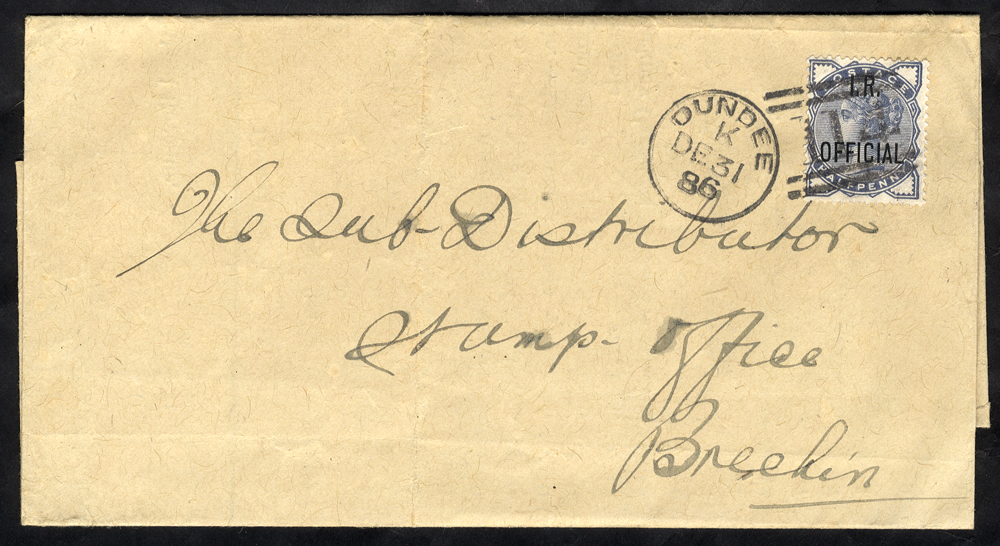 POSTAGE
I.R.
OFFICIAL
HALFPENNY
DUNDEE
K
DE 31
86
The Sub-Distributor
Stamp-Office
Brechin